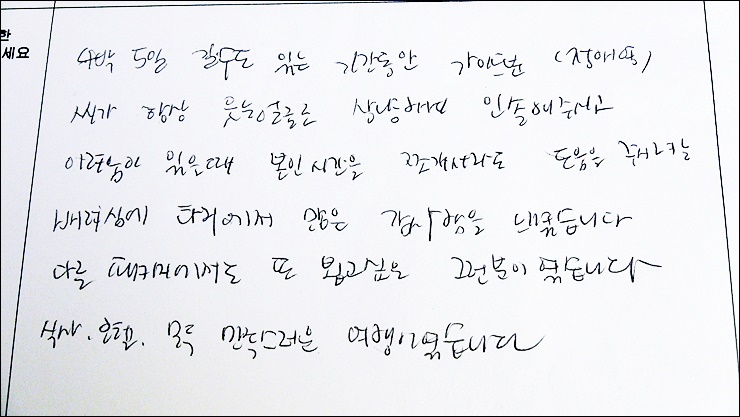 한
세요
4박 5일 길수도 있는 기간동안 가이드분 (정애영)
씨가 항상 웃는얼굴로 상냥하게 인솔해주시고
어려움이 있을때 본인시간을 쪼개서라도 도움을 주려는
배려심에 타지에서 많은 감사함을 느꼈습니다
다른 패키지에서도 또 뵙고싶은 그런분이였습니다
식사. 호텔. 모두 만족스러운 여행이였습니다